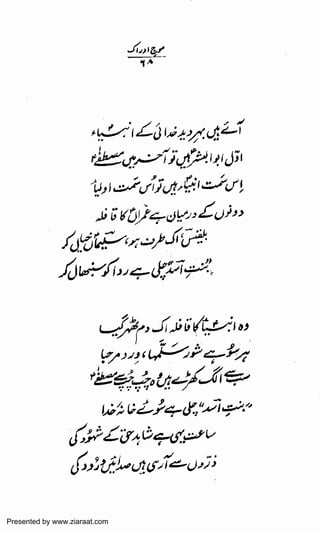 موج ادراک
۶۸
آئے ہیں بہرِ دید خدائی کے انبیاءؑ
اوّل ابوالبشرؑ ہیں تو آخر ہیں مصطفےٰؐ
اِس سمت انبیاءؑ ہیں تو اُس سمت اولیاء
دونوں کے درمیان ہے عمراںؑ کا قافلہ
بلقیس اک طرف ہو، سلیماںؑ خیال کر
بنتِ اسد چلی ہے ردا کو سنبھال کر
وہ انبیاءؑ کا قافلہ اک دم ٹھہر گیا
ہر سُو ہے شورِ سلّمہا، وردِ مرحبا
سب سے الگ کھڑے ہیں وہ چپ چپ سے مصطفےٰؐ
"بنتِ اسد" چلی ہے سوئے خانۂ خدا
ساعت یہی ہے شاہدِ حق کے شہود کی
ذرّوں سے آ رہی ہیں صدائیں درود کی
Presented by www.ziaraat.com